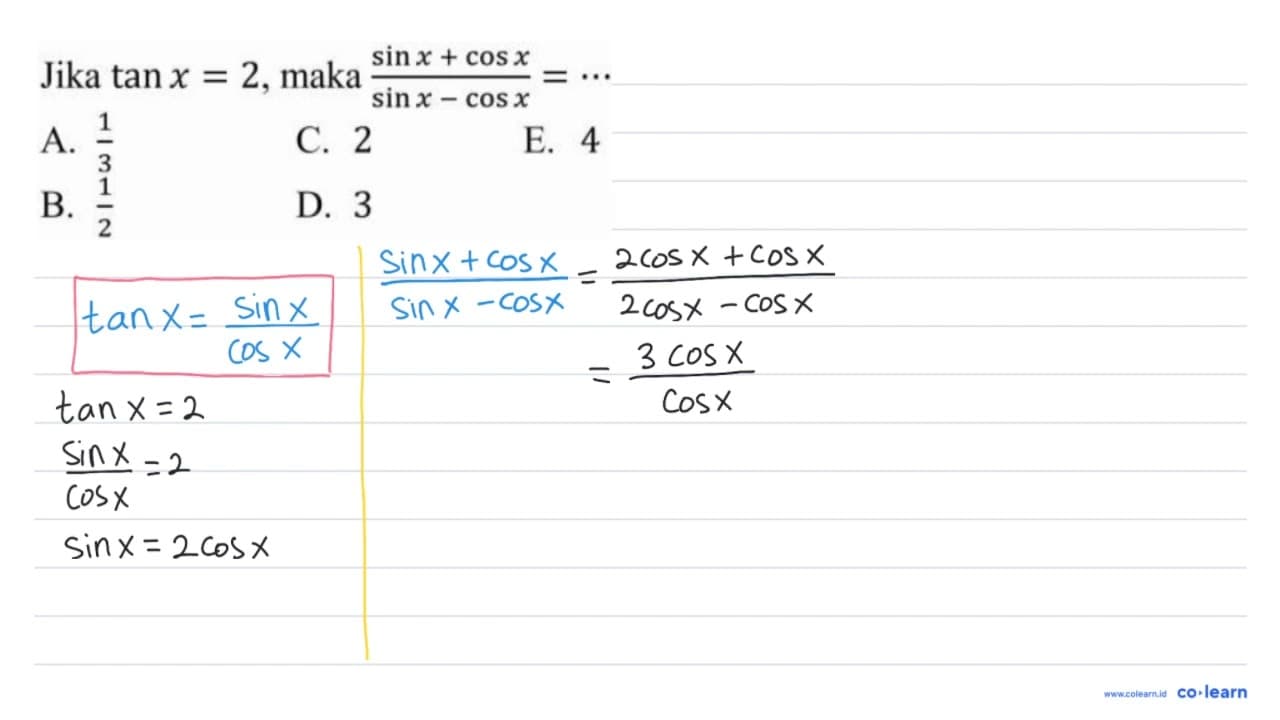 Jika tan x = 2, maka (sin x + cos x)/(sin x − cos x) = ⋯
A. 1/3 C. 2 E. 4
B. 1/2 D. 3
tan x = sin x / cos x
tan x = 2
sin x / cos x = 2
sin x = 2 cos x
(sin x + cos x)/(sin x − cos x) = (2 cos x + cos x)/(2 cos x − cos x)
= 3 cos x / cos x
www.colearn.id co·learn